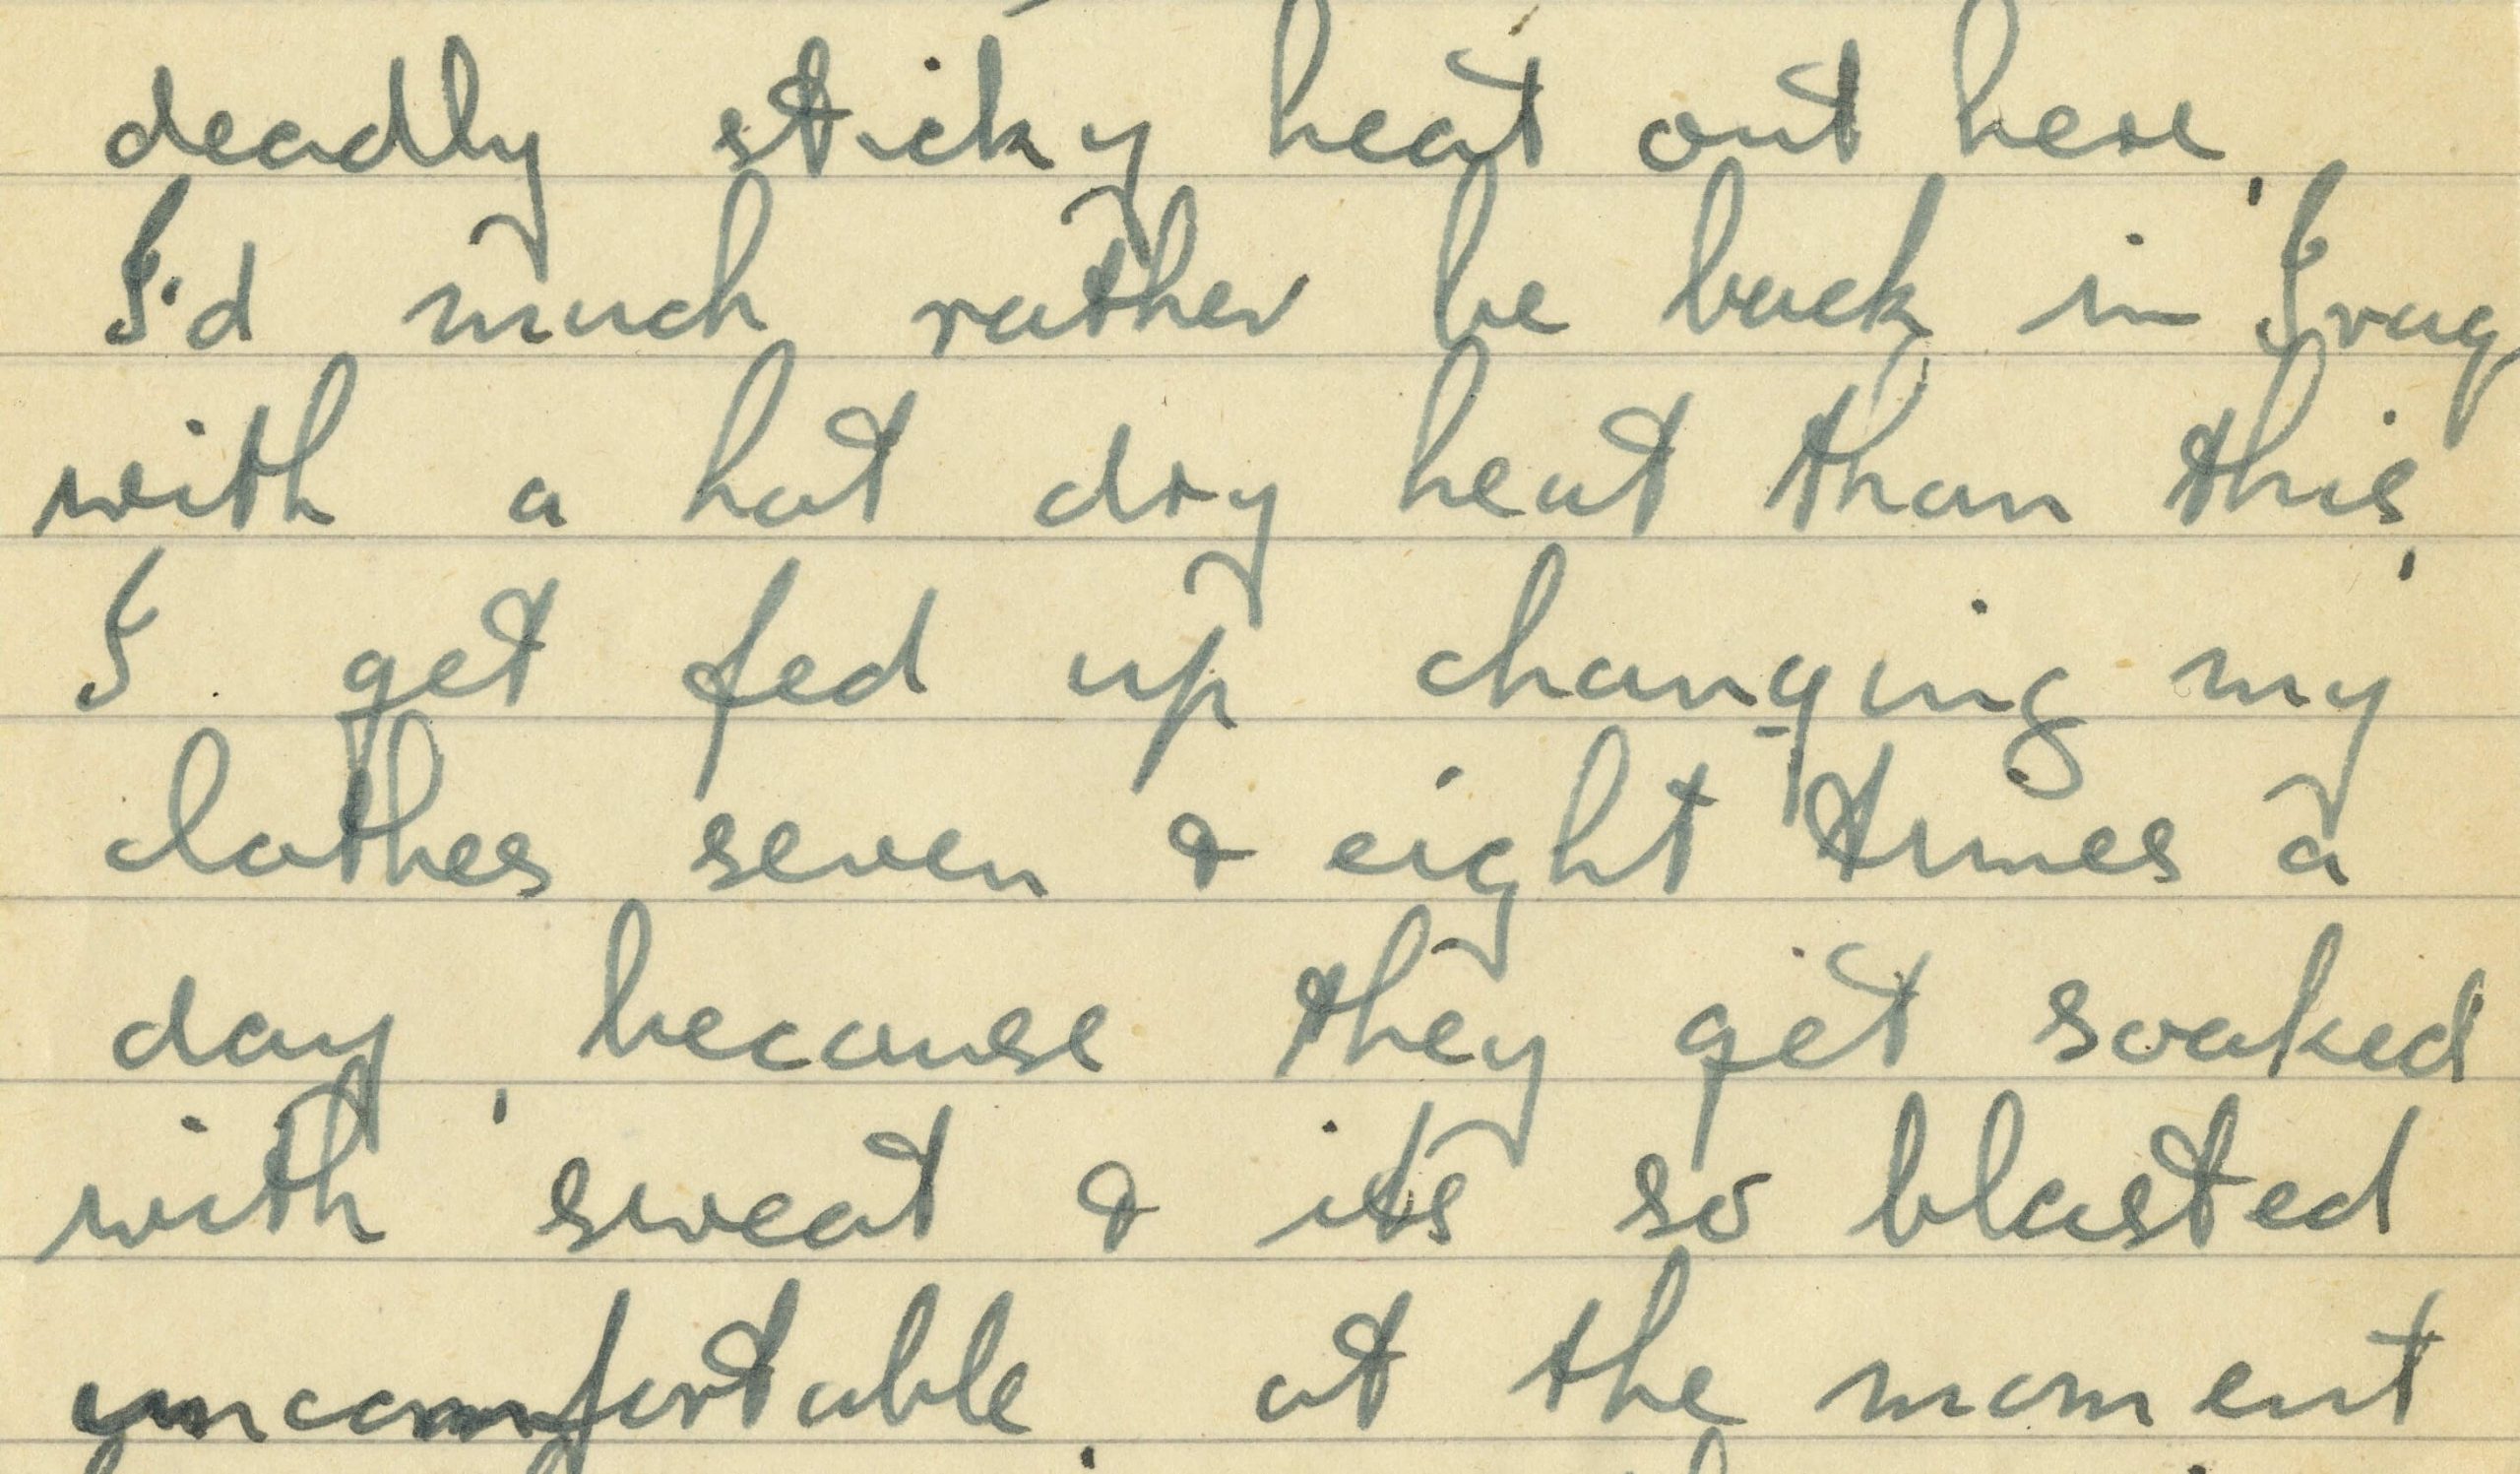 deadly sticky heat out here,
I'd much rather be back in Iraq
with a hot dry heat than this,
I get fed up changing my
clothes seven & eight times a
day, because they get soaked
with sweat & its so blasted
uncomfortable. at the moment